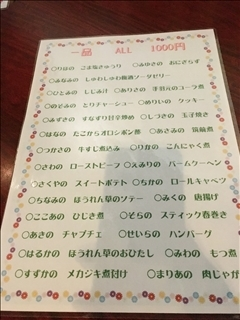 一品 ALL 1000円
○りなの ごま塩きゅうり ○みゆきの おにぎらず
○みなみの しゅわしゅわ梅酒ソーダゼリー
○ひとみの しじみ汁 ○ありさの 手羽元のコーラ煮
○のぞみの とりチャーシュー ○めりいの クッキー
○みずきの すなずり甘辛炒め ○しづきの 玉子焼き
○はなの たこからオロシポン酢 ○あさみの 筑前煮
○つかさの 牛すじ煮込み ○りかの こんにゃく煮
○さわの ローストビーフ ○えみりの バームクーヘン
○さくやの スイートポテト ○ちかの ロールキャベツ
○ちなみの ほうれん草のソテー ○みくの 唐揚げ
○ここあの ひじき煮 ○そらの スティック春巻き
○あきの チャプチェ ○せいらの ハンバーグ
○はるかの ほうれん草のおひたし ○みわの もつ煮
○すずかの メカジキ煮付け ○まりあの 肉じゃが